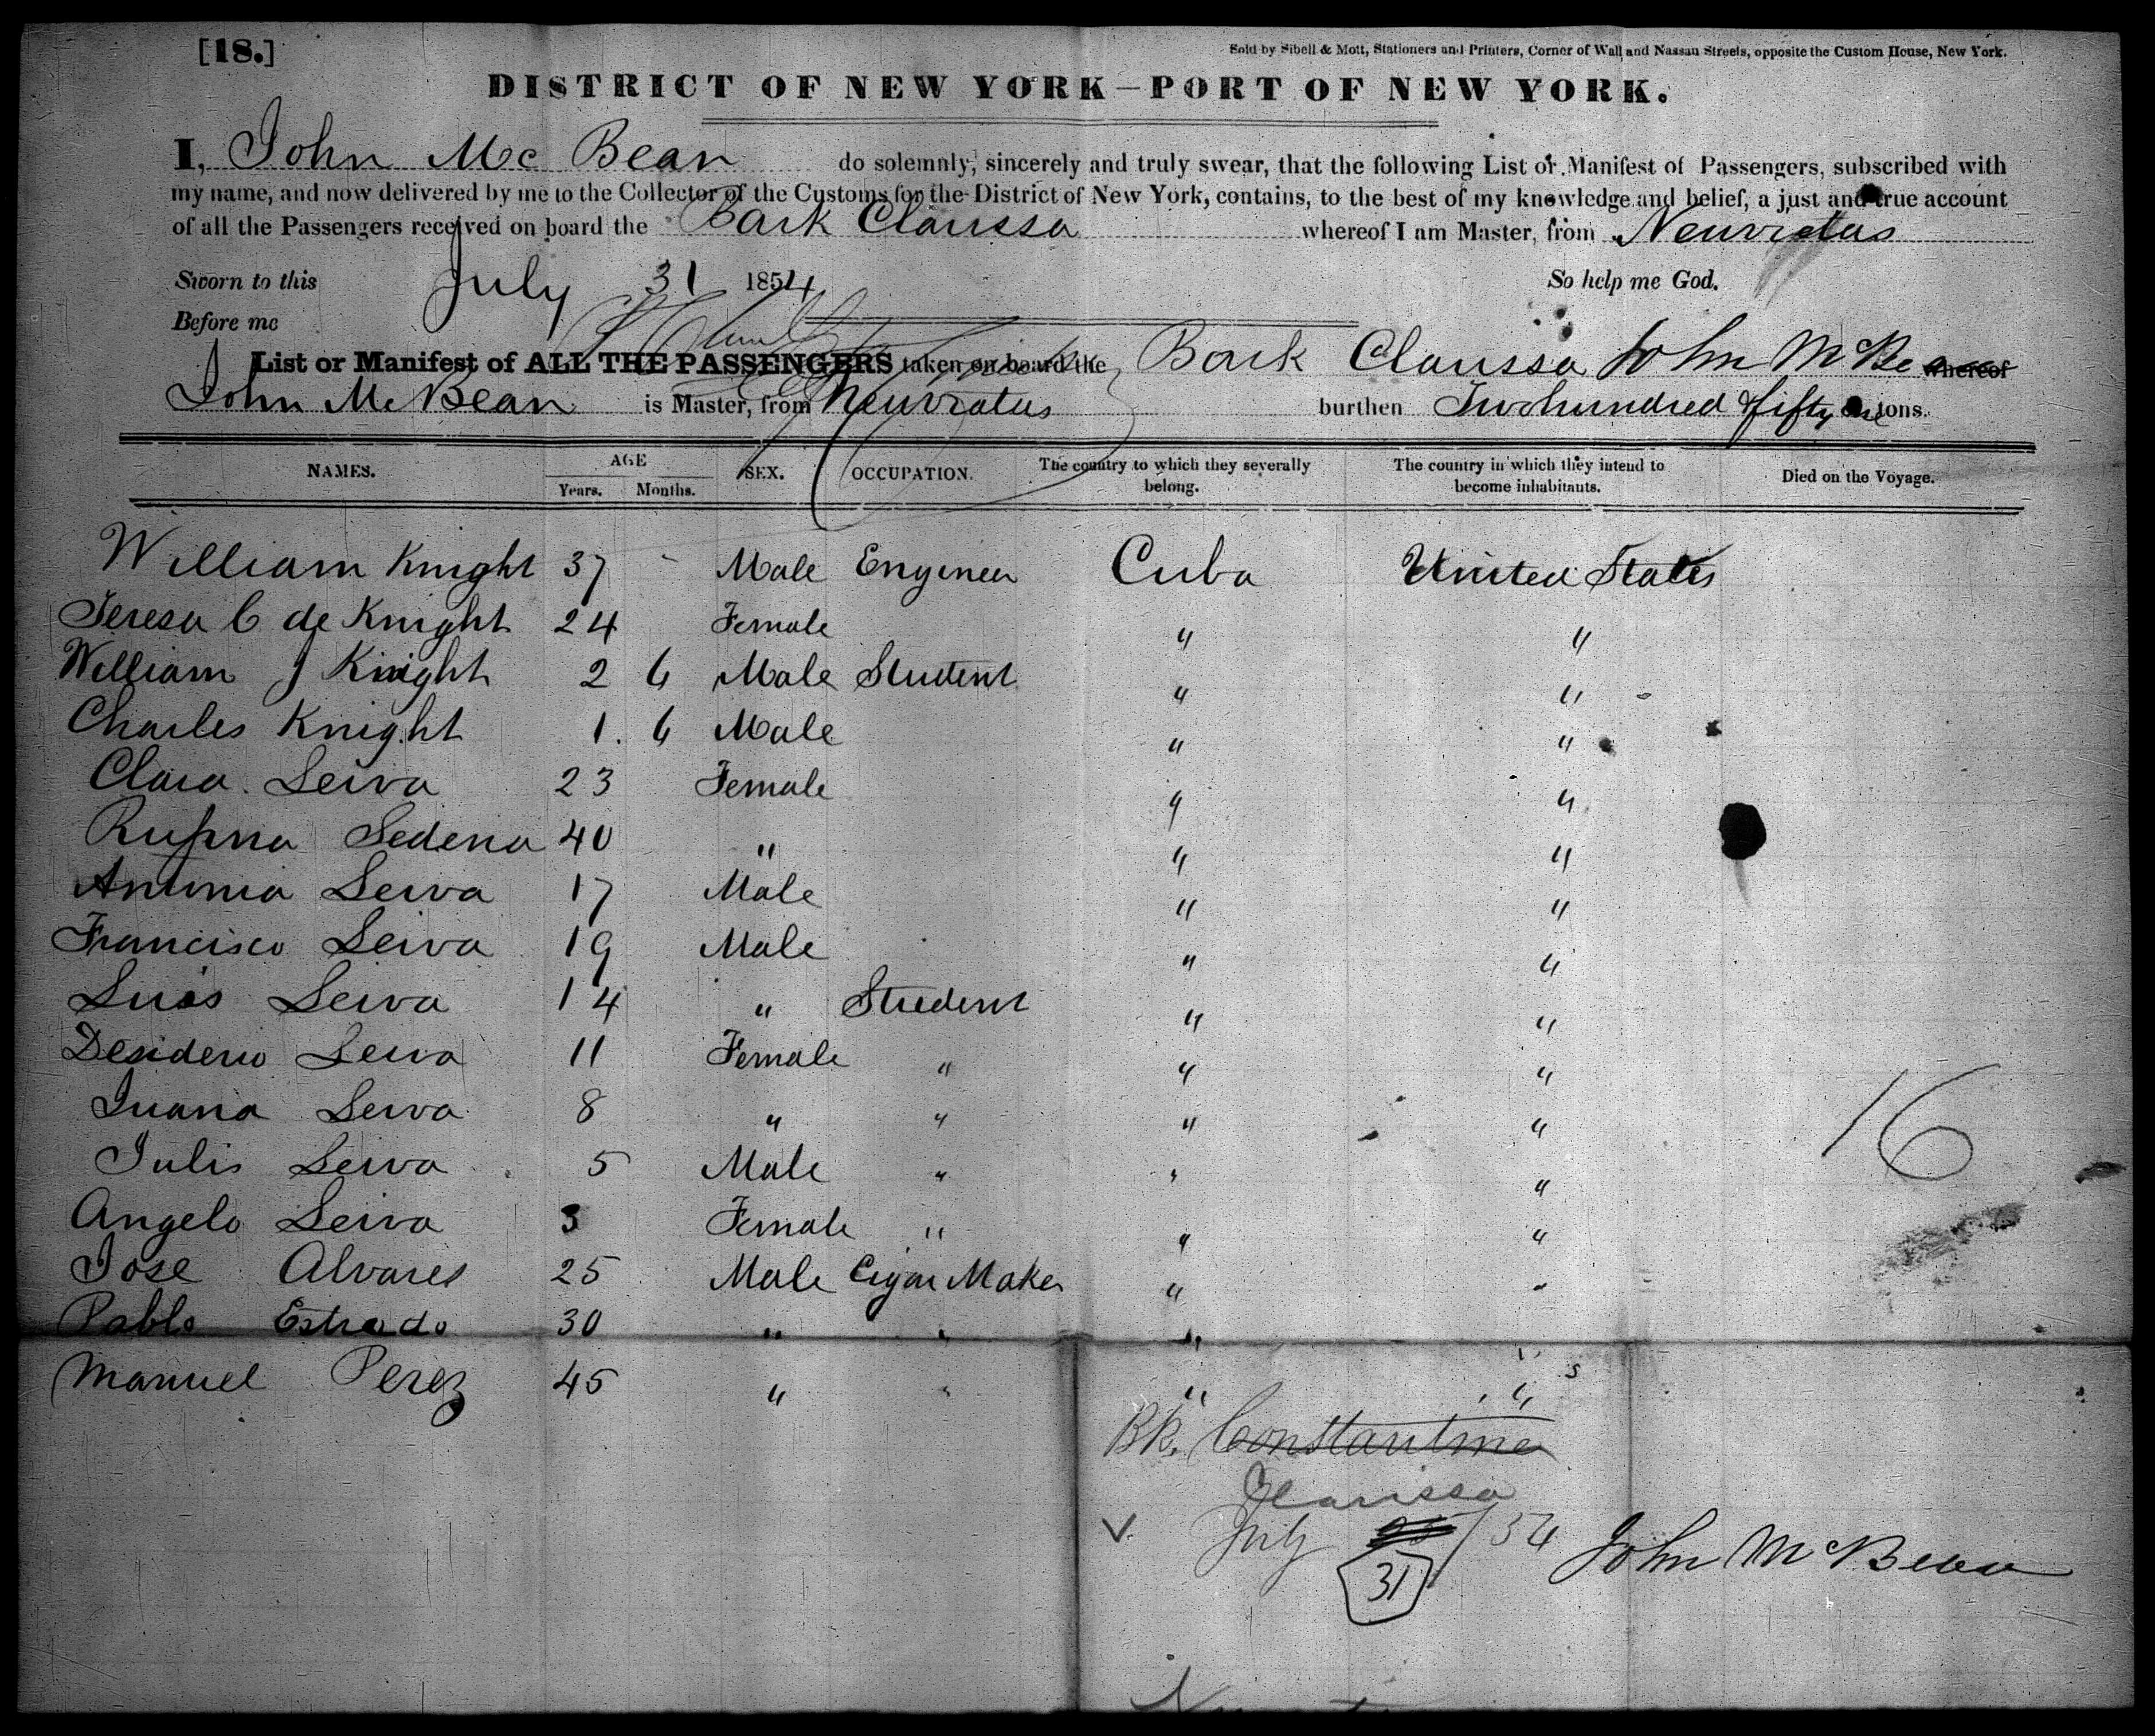 [18.]
Sold by Sibell & Mott, Stationers and Printers, Corner of Wall and Nassau Streets, opposite the Custom House, New York.
DISTRICT OF NEW YORK—PORT OF NEW YORK.
I, John Mc Bean do solemnly, sincerely and truly swear, that the following List or Manifest of Passengers, subscribed with
my name, and now delivered by me to the Collector of the Customs for the District of New York, contains, to the best of my knowledge and belief, a just and true account
of all the Passengers received on board the Bark Clarissa whereof I am Master, from Neuvietas
Sworn to this July 31 1854 So help me God.
Before me
List or Manifest of ALL THE PASSENGERS taken on board the Bark Clarissa John McBe whereof
John McBean is Master, from Neuvietas burthen Two hundred & fifty one tons.
NAMES. AGE SEX. OCCUPATION. The country to which they severally belong. The country in which they intend to become inhabitants. Died on the Voyage.
Years. Months.
William Knight 37 - Male Engineer Cuba United States
Teresa C de Knight 24 Female " "
William J Knight 2 6 Male Student " "
Charles Knight 1. 6 Male " "
Clara. Leiva 23 Female " "
Rufina Sedena 40 " " "
Antonia Leiva 17 Male " "
Francisco Leiva 19 Male " "
Luis Leiva 14 " Student " "
Desiderio Leiva 11 Female " " "
Juana Leiva 8 " " " "
Julis Leiva 5 Male " " "
Angelo Leiva 3 Female " " "
Jose Alvares 25 Male Cigar Maker " "
Pablo Estrado 30 " " " "
Manuel Perez 45 " " " "
16
Bk. Constantine
Clarissa
July /54
31
John McBean